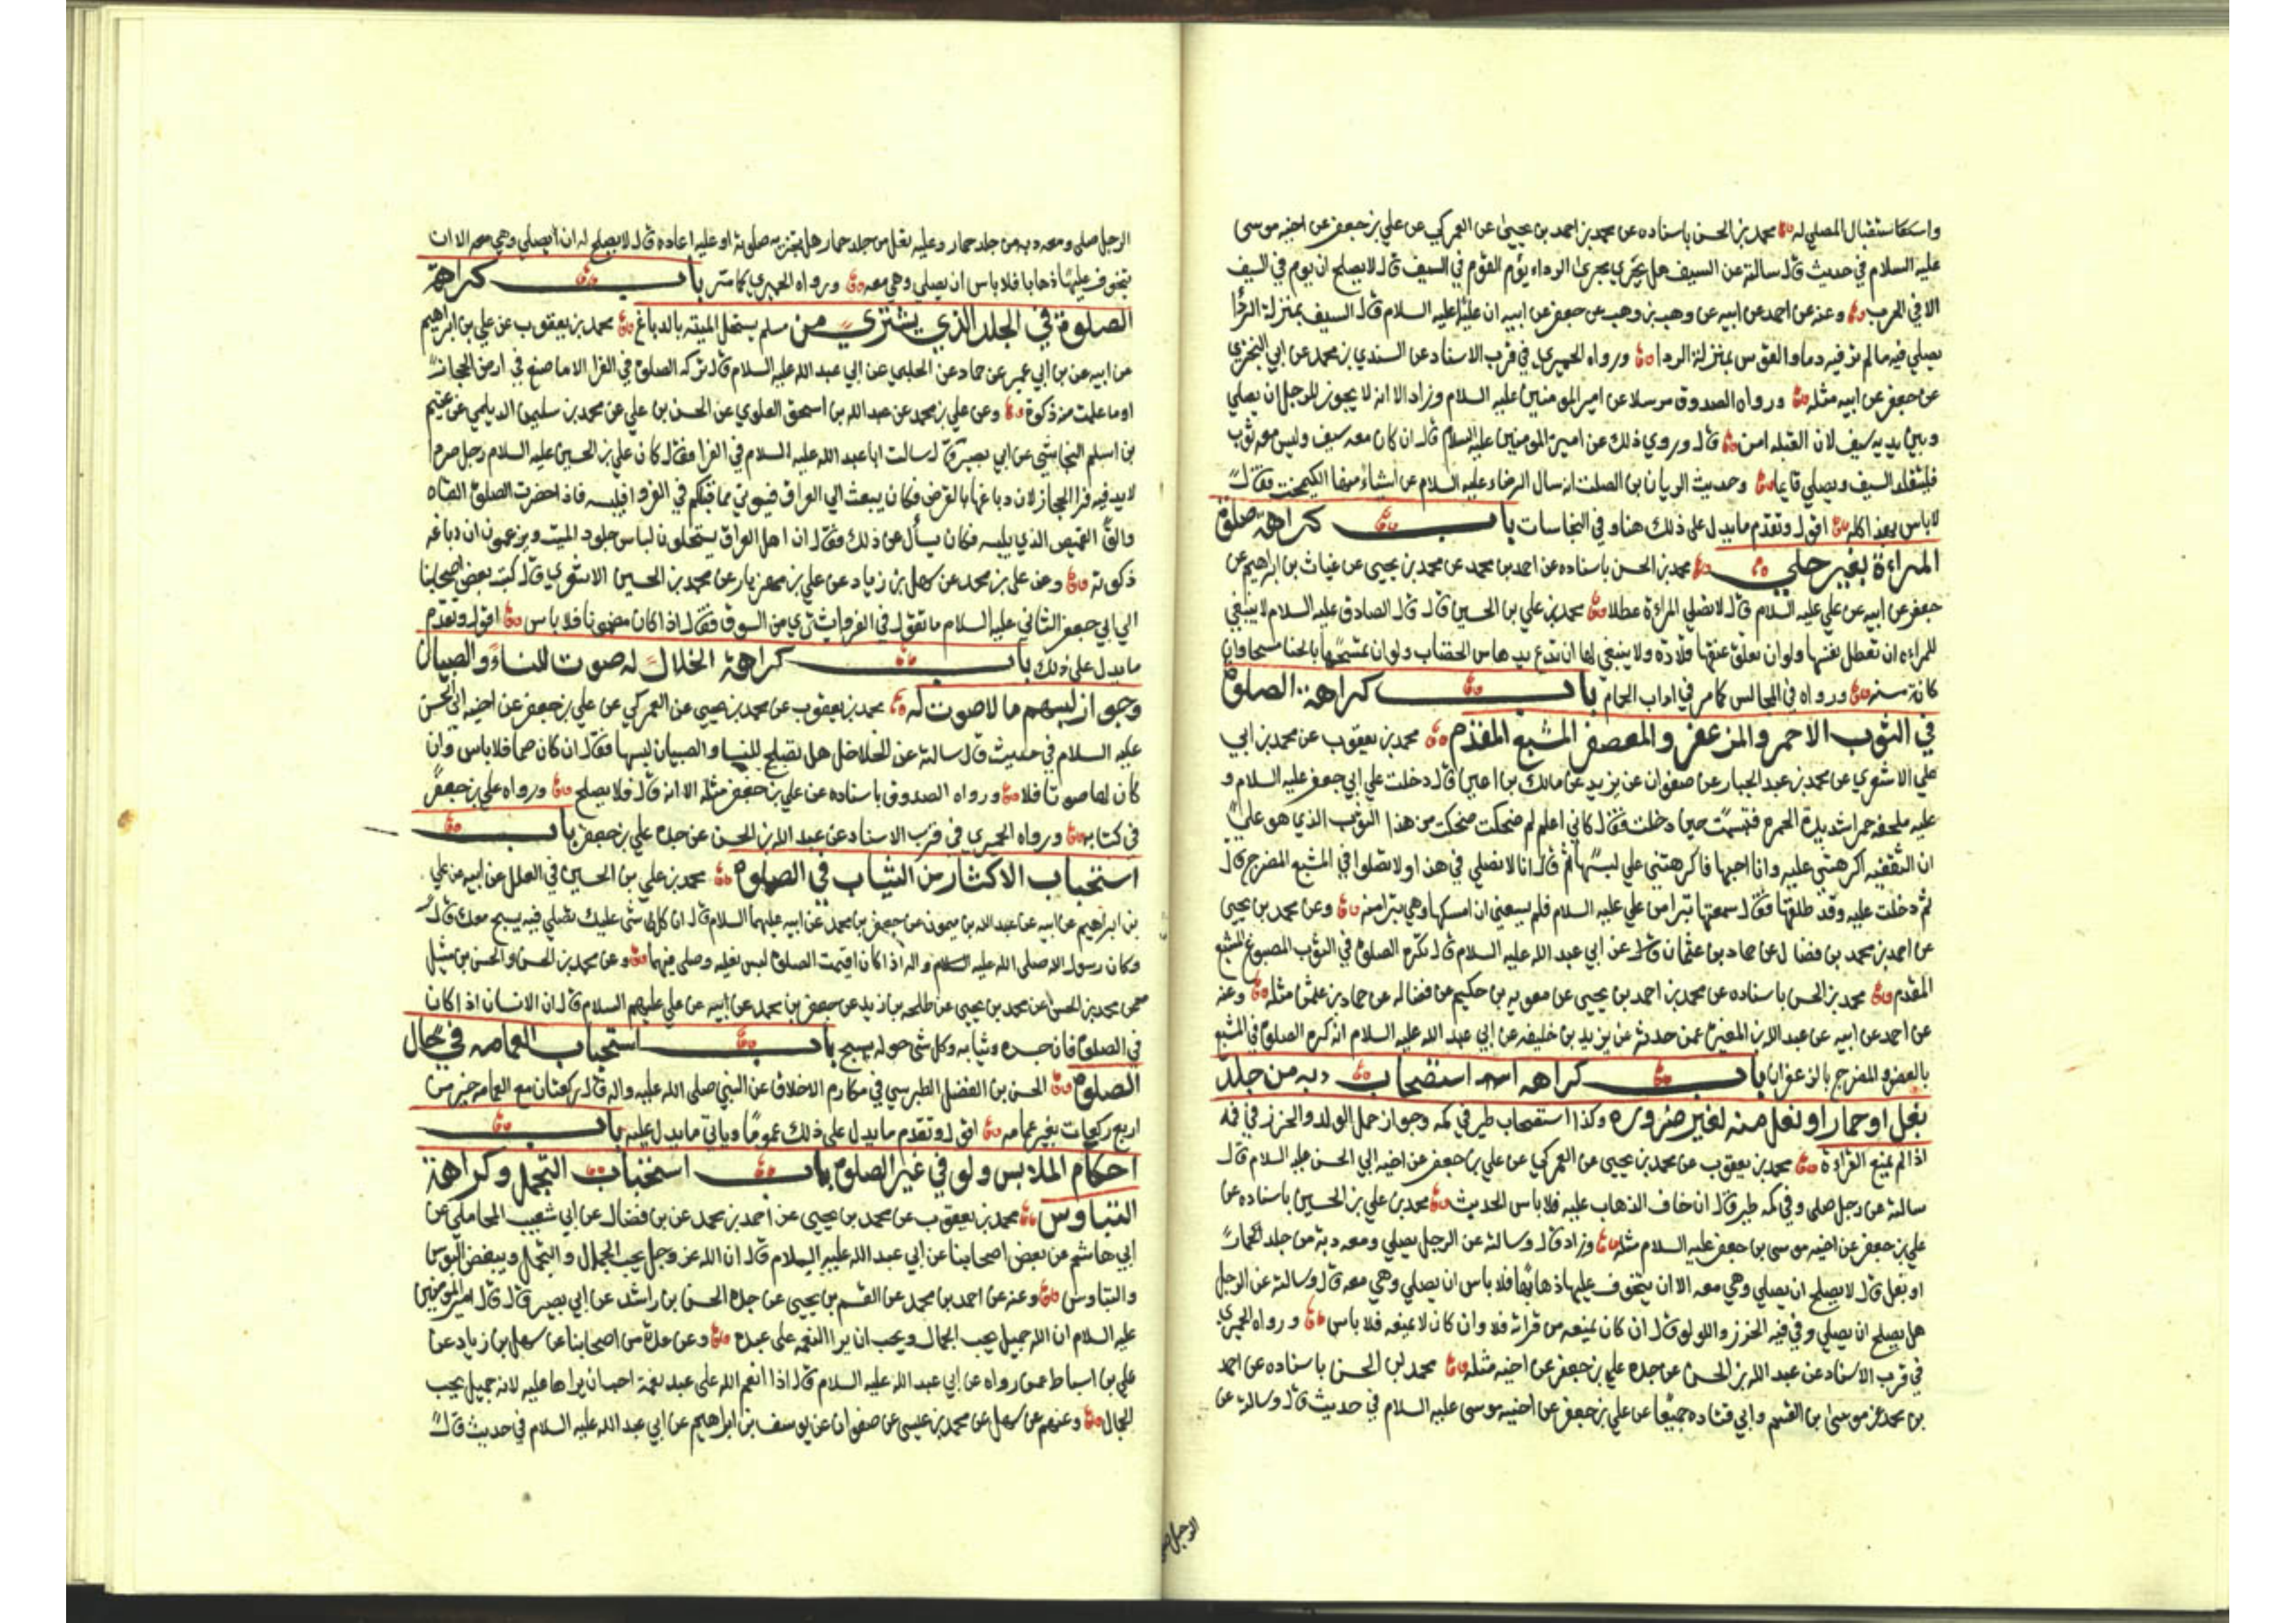 واستقبال المصلي له محمد بن الحسن باسناده عن محمد بن احمد بن يحيى عن العمركي عن علي بن جعفر عن اخيه موسى
عليه السلام في حديث قال سالته عن السيف هل يجري مجرى الرداء يؤم القوم في السيف قال لا يصلح ان يوم في السيف
الا في الحرب وعنه عن احمد عن ابيه عن وهب بن وهب عن جعفر عن ابيه ان عليا عليه السلام قال السيف بمنزلة الردا
يصلي فيه ما لم تر فيه دما والقوس بمنزلة الردا ورواه الحميري في قرب الاسناد عن السندي بن محمد عن ابي البختري
عن جعفر عن ابيه مثله ورواه الصدوق مرسلا عن امير المومنين عليه السلام وزاد الا انه لا يجوز للرجل ان يصلي
وبين يديه سيف لان القبله امن قال وروي ذلك عن امير المومنين عليه السلام قال ان كان معه سيف وليس معه ثوب
فليتقلد السيف ويصلي قايما وحديث الريان بن الصلت انه سال الرضا عليه السلام عن اشياء منها الكيمخت فقال
لا باس بهذا كله اقول وتقدم ما يدل على ذلك هنا وفي النجاسات باب كراهة صلوة
المراءة بغير حلي محمد بن الحسن باسناده عن احمد بن محمد عن محمد بن يحيى عن غياث بن ابراهيم عن
جعفر عن ابيه عن علي عليه السلام قال لا تصلي المراة عطلا محمد بن علي بن الحسين قال قال الصادق عليه السلام لا ينبغي
للمراءه ان تعطل نفسها ولو ان تعلق عنقها قلادة ولا ينبغي لها ان تدع يدها من الخضاب ولو ان تمسحها بالحنا مسحا وان
كانة مسنه ورواه في المجالس كما مر في اداب الحمام باب كراهة الصلوة
في الثوب الاحمر والمزعفر والمعصفر المشبع المفدم محمد بن يعقوب عن محمد بن ابي
علي الاشعري عن محمد بن عبد الجبار عن صفوان عن بزيد عن مالك بن اعين قال دخلت علي ابي جعفر عليه السلام و
عليه ملحفه حمرا شديدة الحمره فتبسمت حين دخلت فقال كاني اعلم لم ضحكت ضحكت من هذا الثوب الذي هو علي
ان الثقفيه اكرهتني عليه وانا احبها فاكرهتني علي لبسها ثم قال انا لا نصلي في هذا ولا تصلوا في المشبع المضرج قال
ثم دخلت عليه وقد طلقها فقال سمعتها تبرا من علي عليه السلام فلم يسعني ان امسكها وهي تبرا منه وعن محمد بن يحيى
عن احمد بن محمد بن فضال عن حماد بن عثمان قال عن ابي عبد الله عليه السلام قال تكره الصلوة في الثوب المصبوغ المشبع
المفدم محمد بن الحسن باسناده عن محمد بن احمد بن يحيى عن معويه بن حكيم عن فضاله عن حماد بن عثمن مثله وعنه
عن احمد عن ابيه عن عبد الله بن المغيرة عمن حدثه عن يزيد بن خليفه عن ابي عبد الله عليه السلام انه كره الصلوة في المشبع
بالعصفر والمضرج بالزعفران باب كراهه استصحاب دبه من جلد
بغل او حمار او نعل منه لغير ضروره وكذا استصحاب طير في كمه وجواز حمل الولد والخرز في فمه
اذا لم يمنع القراءة محمد بن يعقوب عن محمد بن يحيى عن العمركي عن علي بن جعفر عن اخيه ابي الحسن عليه السلام قال
سالته عن رجل صلى وفي كمه طير قال ان خاف الذهاب عليه فلا باس الحديث محمد بن علي بن الحسين باسناده عن
علي بن جعفر عن اخيه موسى بن جعفر عليه السلام مثله وزاد قال وسالته عن الرجل يصلي ومعه دبة من جلد الحمار
او بغل قال لا يصلح ان يصلي وهي معه الا ان يتخوف عليها ذهابها فلا باس ان يصلي وهي معه قال وسالته عن الرجل
هل يصلح ان يصلي وفي فيه الخرز واللولو قال ان كان يمنعه من قراته فلا وان كان لا يمنعه فلا باس ورواه الحميري
في قرب الاسناد عن عبد الله بن الحسن عن جده علي بن جعفر عن اخيه مثله محمد بن الحسن باسناده عن احمد
بن محمد عن موسى بن القسم وابي قتاده جميعا عن علي بن جعفر عن اخيه موسى عليه السلام في حديث قال وسالته عن
الرجل صلى
الرجل صلى ومعه دبه من جلد حمار وعليه نعل من جلد حمار هل يجزيه صلوته او عليه اعاده قال لا يصلح له ان يصلي وهي معه الا ان
يتخوف عليها ذهابا فلا باس ان يصلي وهي معه ورواه الحميري كما مر باب كراهة
الصلوة في الجلد الذي يشترى من مسلم يستحل الميته بالدباغ محمد بن يعقوب عن علي بن ابراهيم
عن ابيه عن بن ابي عمير عن حماد عن الحلبي عن ابي عبد الله عليه السلام قال تركه الصلوة في الفرا الا ما صنع في ارض الحجاز
او ما علمت منه ذكوة وعن علي بن محمد عن عبد الله بن اسحق العلوي عن الحسن بن علي عن محمد بن سليمن الديلمي عن عيثم
بن اسلم النجاشي عن ابي بصير قال سالت ابا عبد الله عليه السلام في الفرا فقال كان علي بن الحسين عليه السلام رجل صردا
لا يدفيه فرا الحجاز لان دباغها بالقرض فكان يبعث الي العراق فيوتي مما قبلكم في الفرو فيلبسه فاذا حضرت الصلوة القاه
والقى القميص الذي يليه فكان يسأل عن ذلك فقال ان اهل العراق يستحلون لباس جلود الميت ويزعمون ان دباغه
ذكوته وعن علي بن محمد عن سهل بن زياد عن علي بن مهزيار عن محمد بن الحسين الاشعري قال كتب بعض اصحابنا
الي ابي جعفر الثاني عليه السلام ما تقول في الفرو يشتري من السوق فقال اذا كان مضمونا فلا باس اقول وتقدم
ما يدل على ذلك باب كراهة الخلال له صوت للنساء والصبيان
وجواز لبسهم ما لا صوت له محمد بن يعقوب عن محمد بن يحيى عن العمركي عن علي بن جعفر عن اخيه ابي الحسن
عليه السلام في حديث قال سالته عن الخلاخل هل تصلح للنسا والصبيان لبسها فقال ان كان صما فلا باس وان
كان لها صوتا فلا ورواه الصدوق باسناده عن علي بن جعفر مثله الا انه قال فلا يصلح ورواه علي بن جعفر
في كتابه ورواه الحميري في قرب الاسناد عن عبد الله بن الحسن عن جده علي بن جعفر باب
استحباب الاكثار من الثياب في الصلوة محمد بن علي بن الحسين في العلل عن ابيه عن علي
بن ابراهيم عن ابيه عن عبد الله بن ميمون عن جعفر بن محمد عن ابيه عليهما السلام قال ان كل شى عليك تصلي فيه يسبح معك قال
وكان رسول الله صلى الله عليه واله اذا كان اقيمت الصلوة لبس نعليه وصلى فيهما وعن محمد بن الحسن والحسن بن متيل
عن محمد بن الحسن عن محمد بن يحيى عن طلحه بن زيد عن جعفر بن محمد عن ابيه عن علي عليهم السلام قال ان الانسان اذا كان
في الصلوة فان جسده وثيابه وكل شى حوله يسبح باب استحباب العمامه في حال
الصلوة الحسن بن الفضل الطبرسي في مكارم الاخلاق عن النبي صلى الله عليه واله قال ركعتان مع العمامه خير من
اربع ركعات بغير عمامه اقول وتقدم ما يدل على ذلك عموما وياتي ما يدل عليه باب
احكام الملابس ولو في غير الصلوة باب استحباب التجمل وكراهة
التباوس محمد بن يعقوب عن محمد بن يحيى عن احمد بن محمد عن بن فضال عن ابي شعيب المحاملي عن
ابي هاشم عن بعض اصحابنا عن ابي عبد الله عليه السلام قال ان الله عز وجل يحب الجمال والتجمل ويبغض البوس
والتباوس وعنه عن احمد بن محمد عن القسم بن يحيى عن جده الحسن بن راشد عن ابي بصير قال قال امير المومنين
عليه السلام ان الله جميل يحب الجمال ويحب ان يرا النعمه على عبده وعن عدة من اصحابنا عن سهل بن زياد عن
علي بن اسباط عمن رواه عن ابي عبد الله عليه السلام قال اذا انعم الله على عبد نعمة احب ان يراها عليه لانه جميل يحب
الجمال وعنهم عن سهل عن محمد بن عيسى عن صفوان عن يوسف بن ابراهيم عن ابي عبد الله عليه السلام في حديث قال